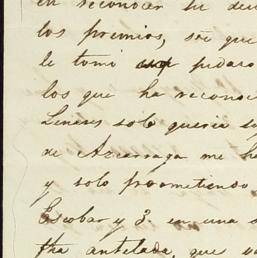 en reconocer su deu
los premios, sŏe que
le tomi un pedaro
los que ha reconoc
Lineres solo queria s
de Azcarraga me h
y solo prometiendo
Escobar y J. en una
fha antelada, que v